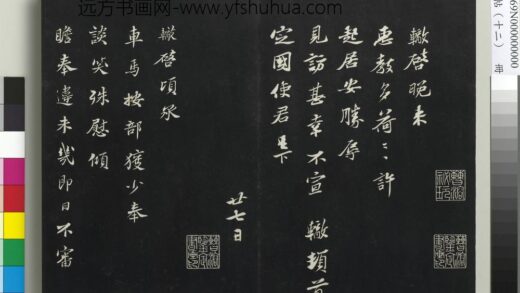 远方书画网-www.yfshuhua.com
轍啓晚来
惠教多荷〻許
起居安勝辱
見訪甚幸不宣 轍頓首
定國使君足下
廿七日
轍啓頃承
車馬按部獲少奉
談笑殊慰傾
瞻奉違未幾即日不審
69N0000000000